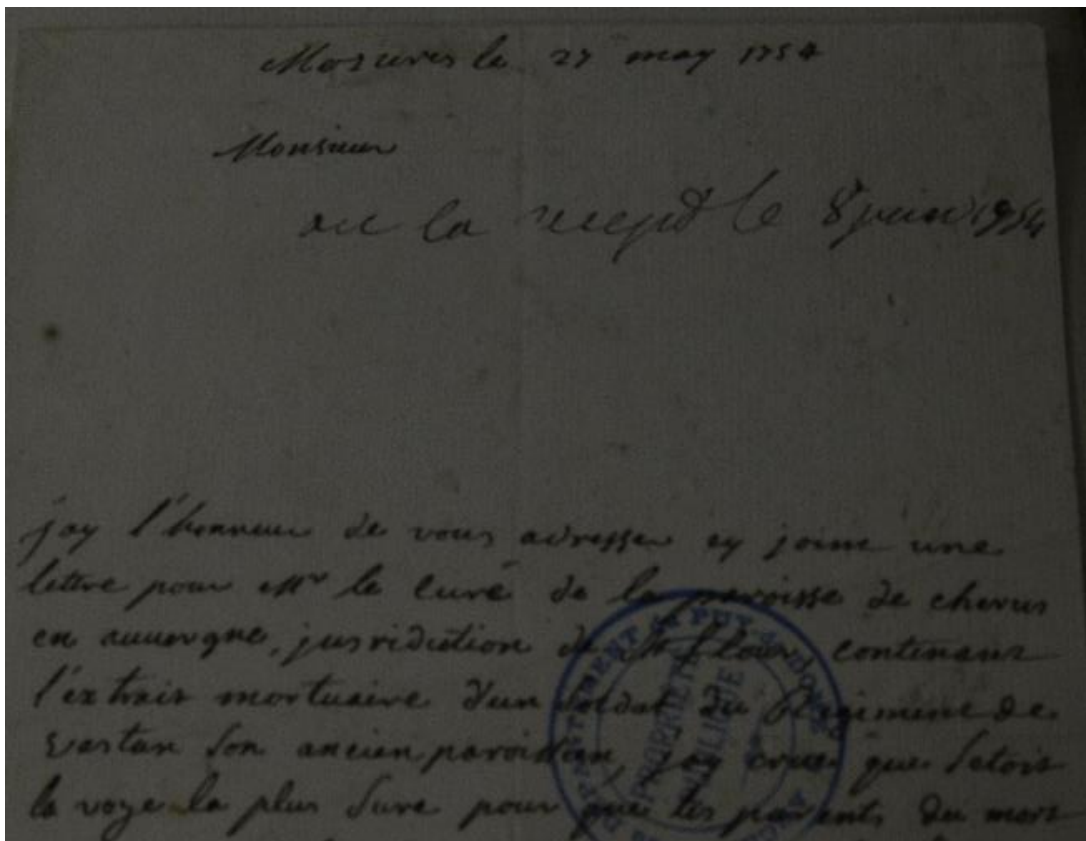 le 27 may 1754
Monsieur
le 8 juin 1754
j'ay l'honneur de vous adresser cy joint une
lettre pour Mr le curé de la paroisse de
en auuergne, jurisdiction de St flour contenant
l'extrait mortuaire d'un soldat du Regiment de
son ancien paroissien, j'ay crue que setoit
la voye la plus sure pour que les parents du mort
DEPARTEMENT du PUY-de-DOME
PROPRIETE
PUBLIQUE